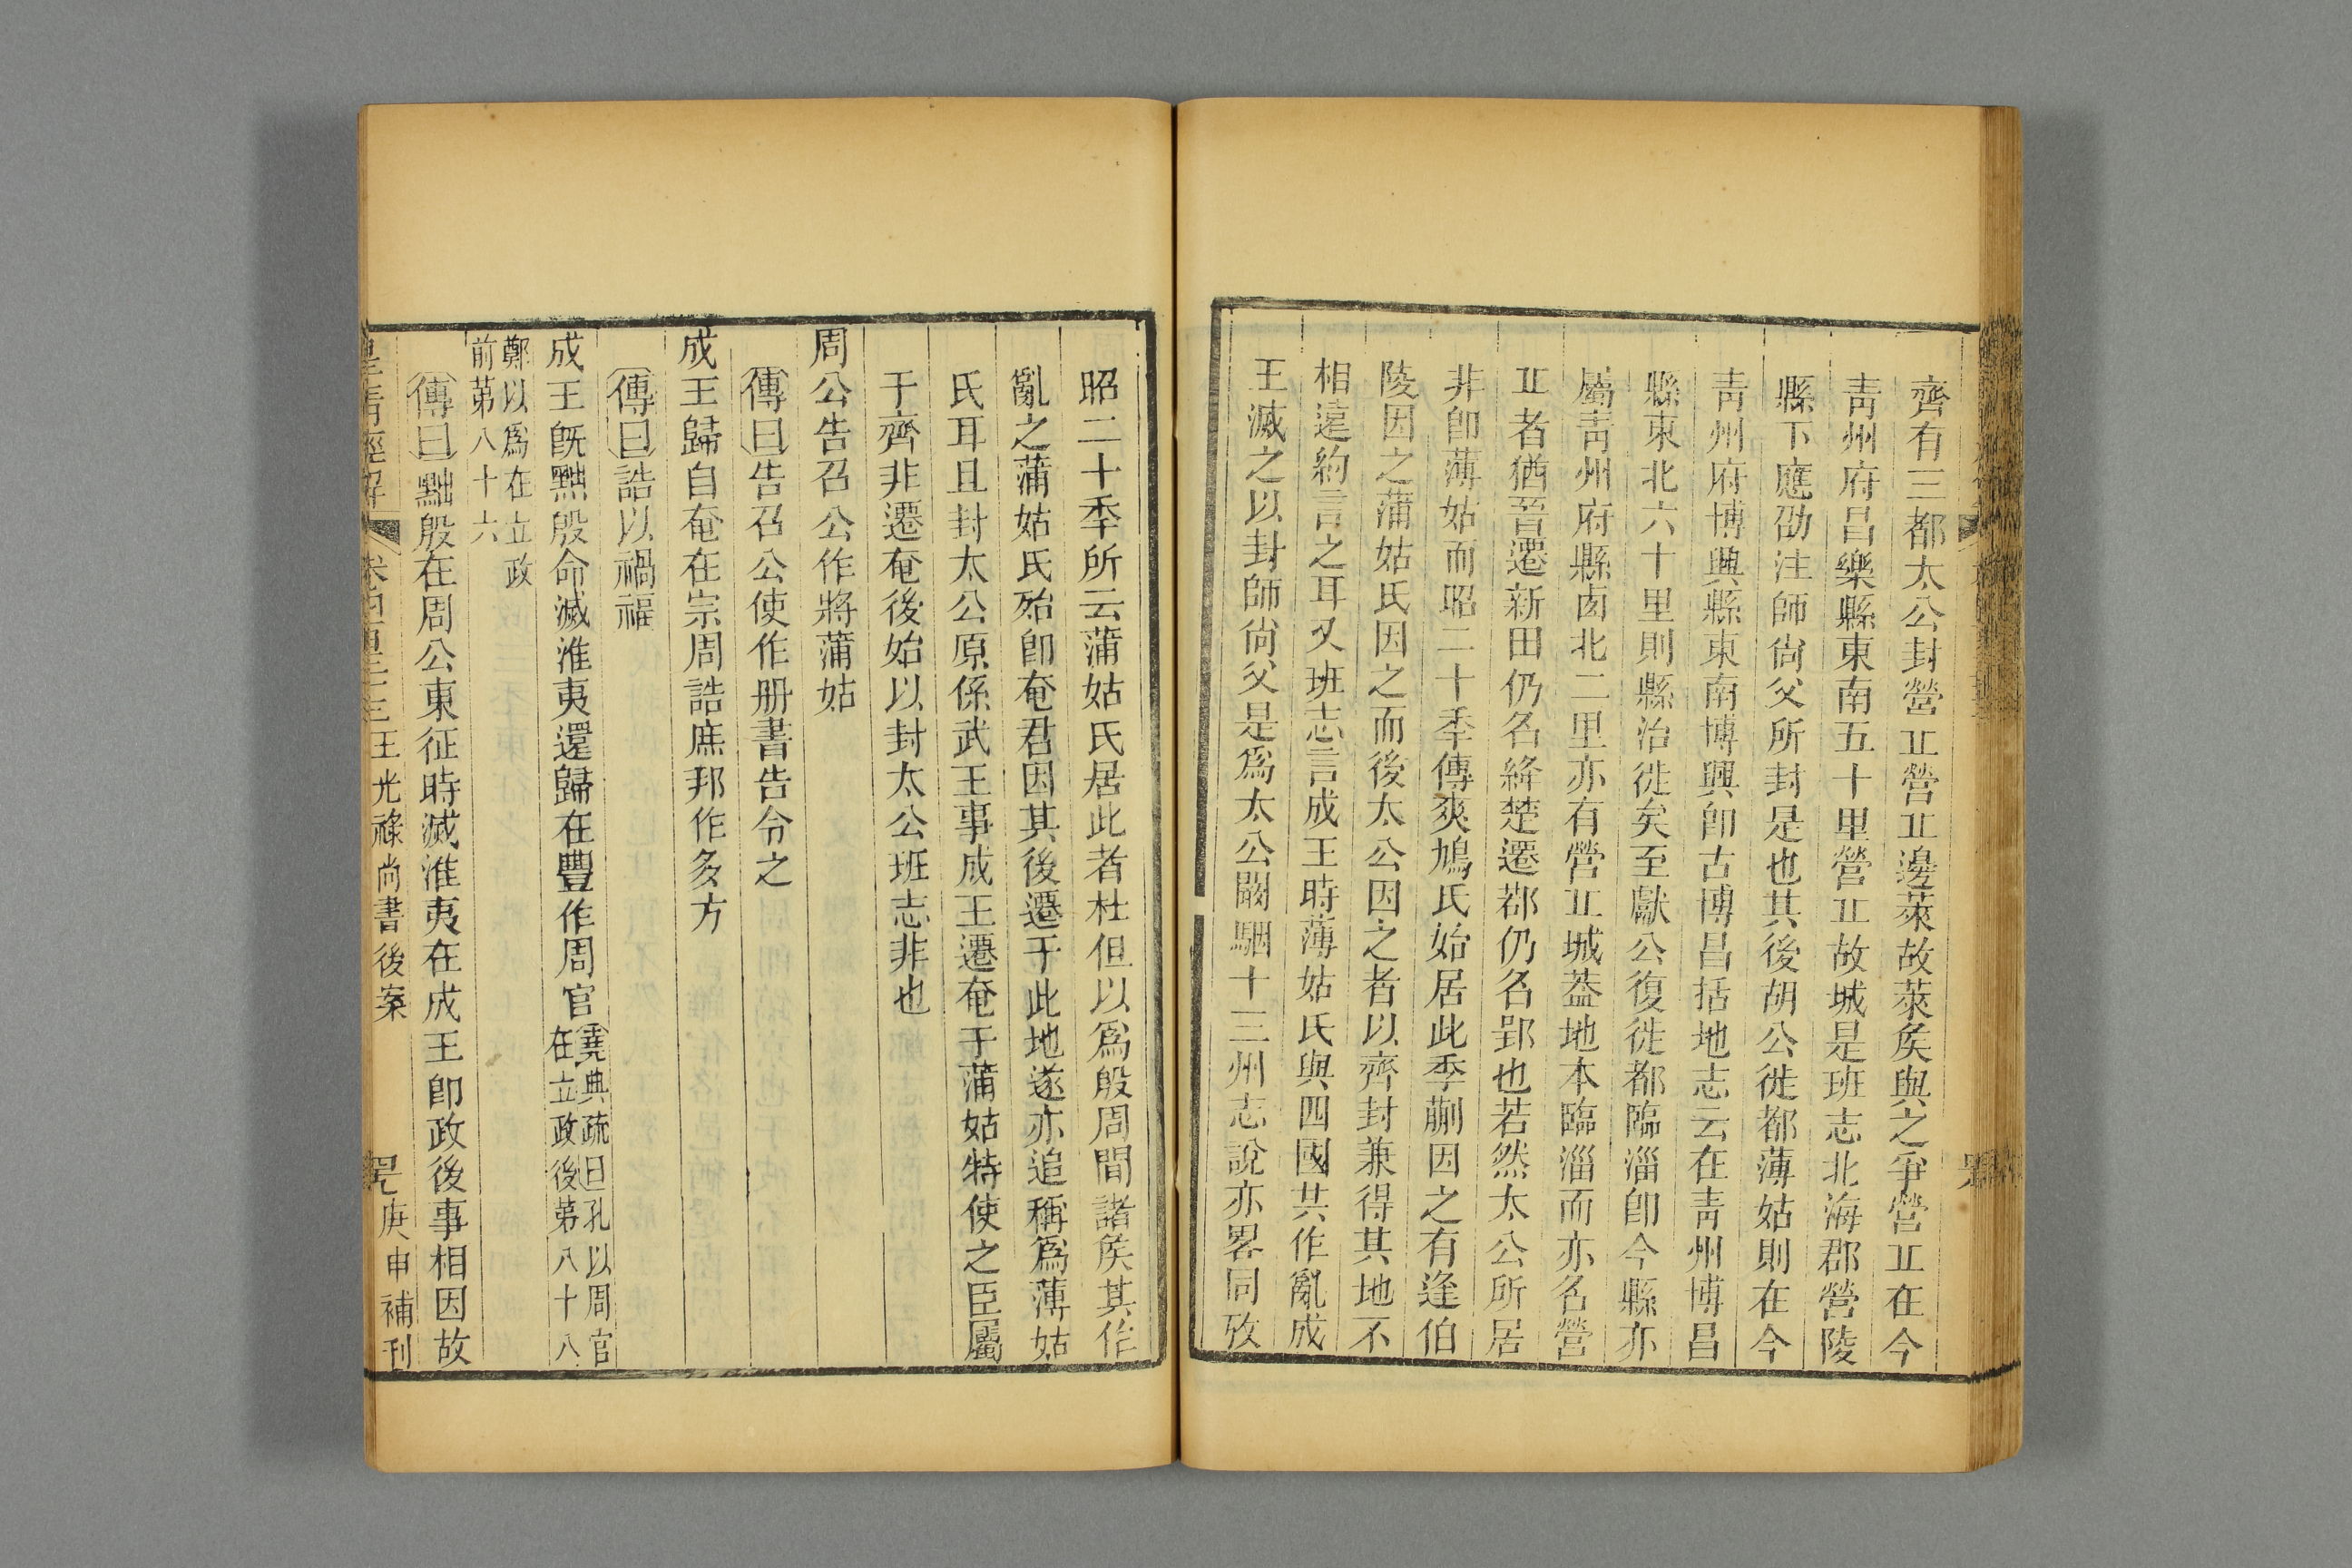 齊有三都太公封營丠營丠邊萊故萊矦與之爭營丠在今
靑州府昌樂縣東南五十里營丠故城是班志北海郡營陵
縣下應劭注師尙父所封是也其後胡公徙都薄姑則在今
靑州府博興縣東南博興卽古博昌括地志云在靑州博昌
縣東北六十里則縣治徙矣至獻公復徙都臨淄卽今縣亦
屬靑州府縣卤北二里亦有營丠城葢地本臨淄而亦名營
丠者猶晉遷新田仍名絳楚遷鄀仍名郢也若然太公所居
非卽薄姑而昭二十秊傳爽鳩氏始居此季萴因之有逄伯
陵因之蒲姑氏因之而後太公因之者以齊封兼得其地不
相遠約言之耳又班志言成王時薄姑氏與四國共作亂成
王滅之以封師尙父是爲太公闞駰十三州志說亦畧同攷
昭二十秊所云蒲姑氏居此者杜但以爲殷周閒諸矦其作
亂之蒲姑氏殆卽奄君因其後遷于此地遂亦追稱爲薄姑
氏耳且封太公原係武王事成王遷奄于蒲姑特使之臣屬
于齊非遷奄後始以封太公班志非也
周公告召公作將蒲姑
傳曰告召公使作册書告令之
成王歸自奄在宗周誥庶邦作多方
傳曰誥以禍福
成王旣黜殷命滅淮夷還歸在豐作周官堯典疏曰孔以周官在立政後第八十八
鄭以爲在立政前第八十六
傳曰黜殷在周公東征時滅淮夷在成王卽政後事相因故
皇淸經解 卷四百三十三 王光祿尚書後案 庚申補刊